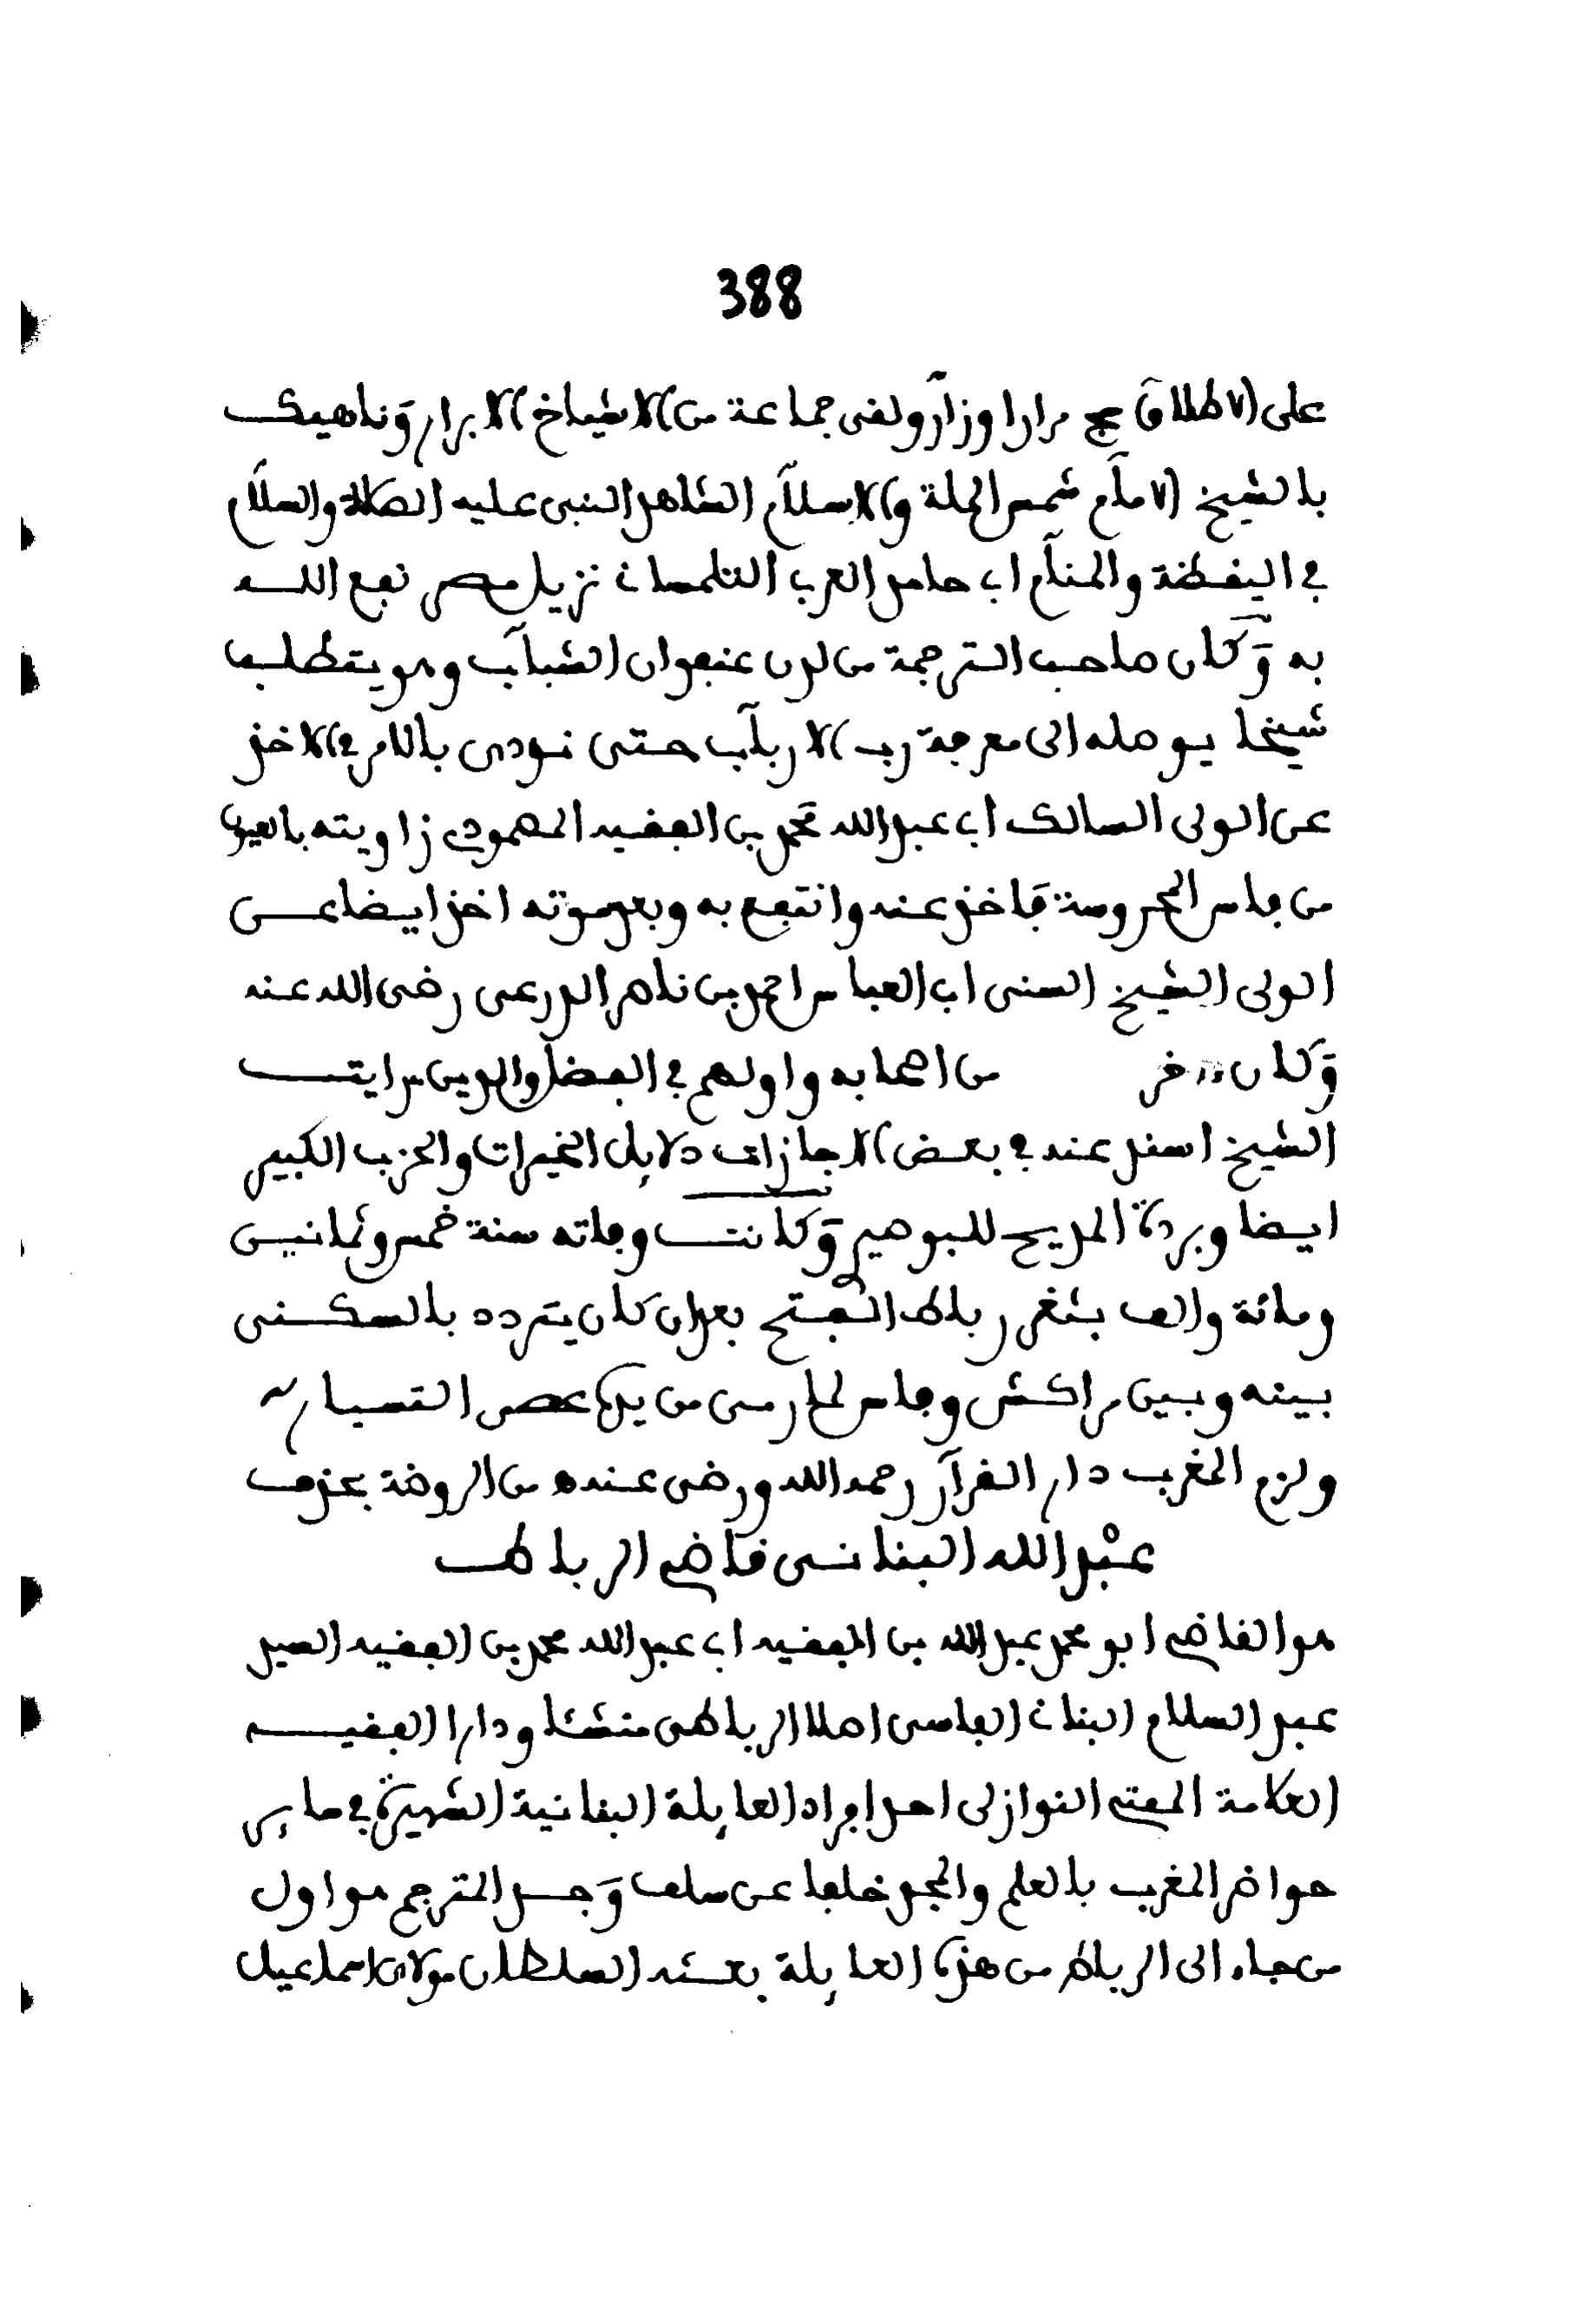 388
على الاطلاق حج مرارا وزار ولقى جماعة من الاشياخ الابرار وناهيك
بالشيخ الامام شمس الملة والاسلام الشاهد النبى عليه الصلاة والسلام
في اليقظة والمنام ابي حامد العربي التلمساني نزيل مصر نفع الله
به وكان صاحب الترجمة من لدن عنفوان الشباب وهو يتطلب
شيخا يوصله الى معرفة رب الارباب حتى نودى بالامر في الاخذ
عن الولى السالك ابي عبد الله محمد بن الفقيه زاويته بالعيون
من فاس المحروسة فاخذ عنه وانتفع به وبعد موته اخذ ايضا عن
الولى الشيخ السنى ابي العباس احمد بن ناصر الدرعى رضى الله عنه
وكان من اصحابه واولهم في الفضل والدين رايت
الشيخ اسند عنه في بعض الاجازات دلايل الخيرات والحزب الكبير
ايضا وبردة المديح للبوصير وكانت وفاته سنة خمس وثمانين
ومائة والف بثغر رباط الفتح بعد ان كان يتردد بالسكنى
بينه وبين مراكش وفاس لما رمى من يده عصى التسيار
ولزم المغرب دار القرار رحمه الله ورضى عنه ه من الروضة بحذف
عبد الله البنانى قاضي الرباط
هو القاضي ابو محمد عبد الله بن الفقيه ابي عبد الله محمد بن الفقيه السيد
عبد السلام البناني الفاسى اصلا الرباطى منشئا ودارا الفقيه
العلامة المفتي النوازلى احد افراد العايلة البنانية الشهيرة في ساير
حواضر المغرب بالعلم والمجد خلفا عن سلف وجد المترجم هو اول
من جاء الى الرباط من هذه العايلة بعثه السلطان مولاى اسماعيل